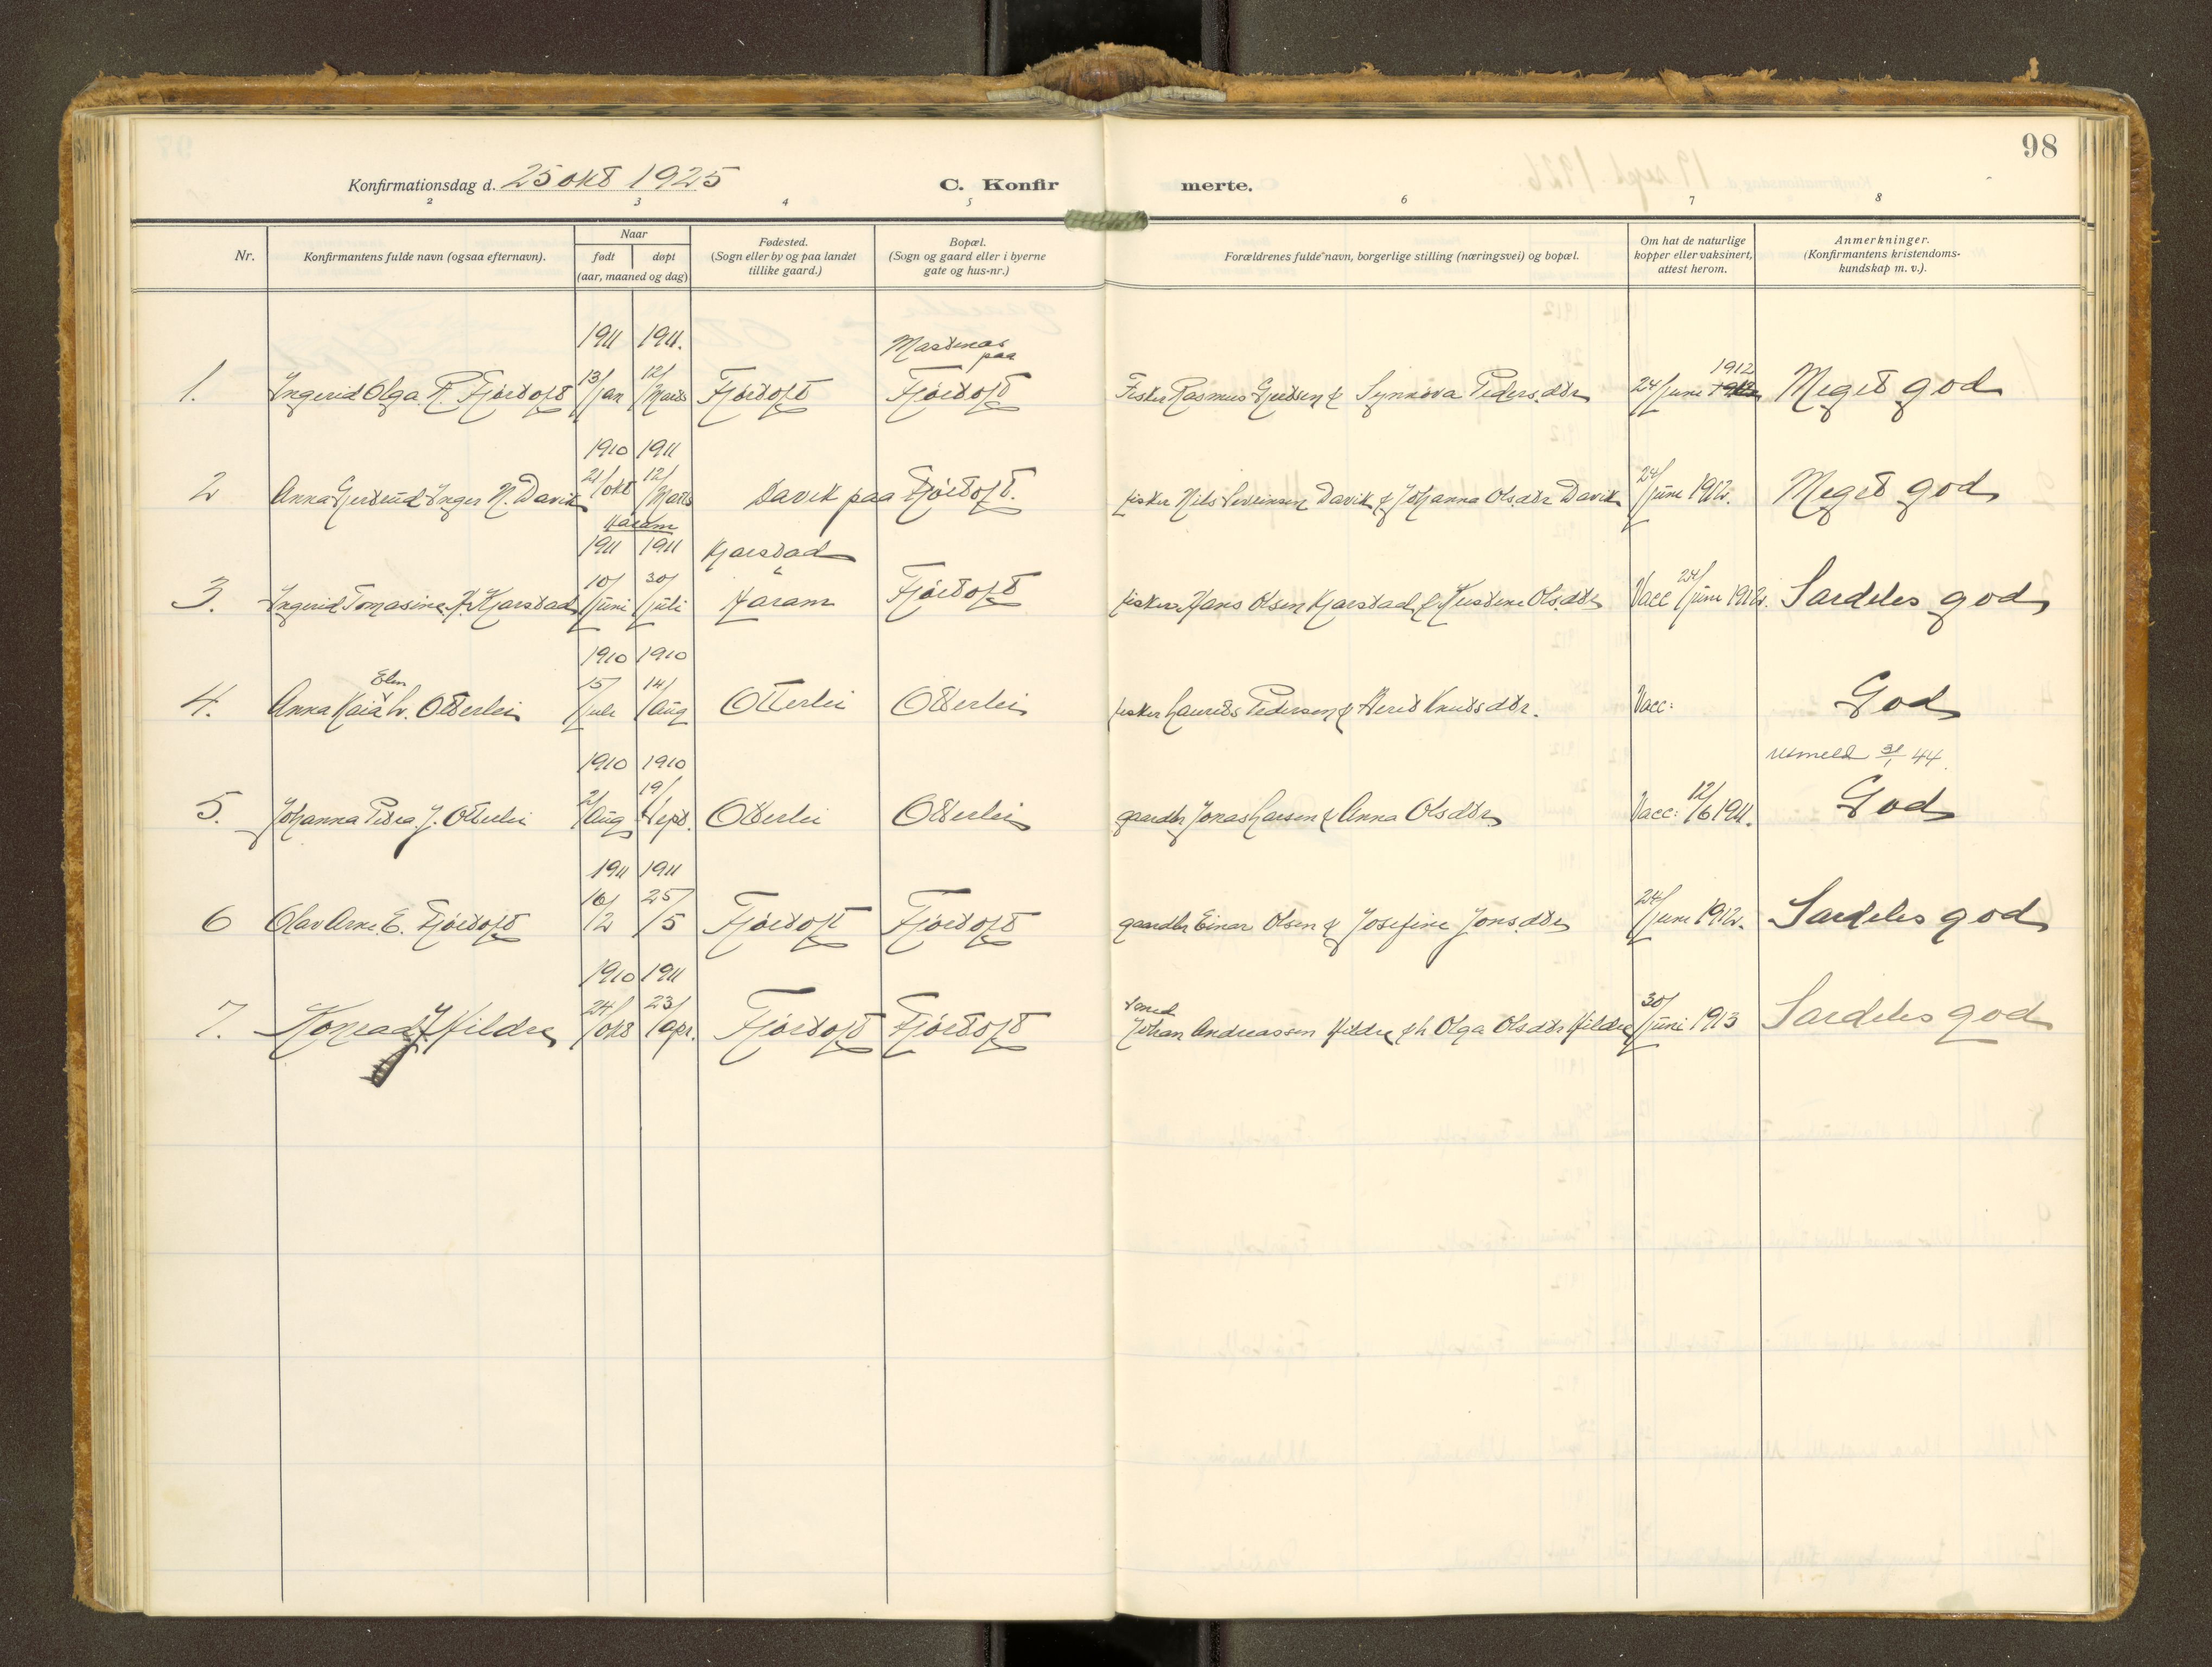 98
Konfirmationsdag d. 25 okt 1925 C. Konfir merte.
2 3 4 5 6 7 8
Nr. Konfirmantens fulde navn (ogsaa efternavn). Naar født døpt (aar, maaned og dag) Fødested. (Sogn eller by og paa landet tillike gaard.) Bopæl. (Sogn og gaard eller i byerne gate og hus-nr.) Forældrenes fulde navn, borgerlige stilling (næringsvei) og bopæl. Om hat de naturlige kopper eller vaksinert, attest herom. Anmerkninger. (Konfirmantens kristendoms- kundskap m. v.).
1911 1911. paa 1912
1. Ingerid Olga R. Fjørtoft 13/jan 12/Marts Fjørtoft Fjørtoft Fisker Rasmus Gjertsen & Synnøva Peders.dtr 24/juni Meget god
1910 1911
2 Anna Gjertrud Inger N. Davik 21/okt 12/Marts Davik paa Fjørtoft. fisker Nils Severinsen Davik & Johanna Olsdtr Davik 24/juni 1912. Meget god
Haram
1911 1911 Kjerstad
3. Ingerid Tomasine H. Kjerstad 10/juni 30/juli Haram Fjørtoft fisker Hans Olsen Kjerstad & Kristine Olsdtr Vacc 24/juni 1912. Særdeles god
1910 1910
4. Anna Kaia Elen L. Otterlei 15/juli 14/aug Otterlei Otterlei fisker Laurits Pedersen & Berit Knutsdtr. Vacc: God
1910 1910 utmeldt 31/1 44.
5. Johanna Petra J. Otterlei 2/aug 19/sept. Otterlei Otterlei gaardbr Jonas Larsen & Anna Olsdtr Vacc: 12/6 1911. God
1911 1911
6 Olav Arne E. Fjørtoft 16/2 25/5 Fjørtoft Fjørtoft gaardbr Einar Olsen & Josefine Jonsdtr 24/juni 1912. Særdeles god
1910 1911
7. Konrad J Hildre 24/okt 23/apr. Fjørtoft Fjørtoft smed Johan Andreassen Hildre & h Olga Olsdtr Hildre 30/juni 1913 Særdeles god